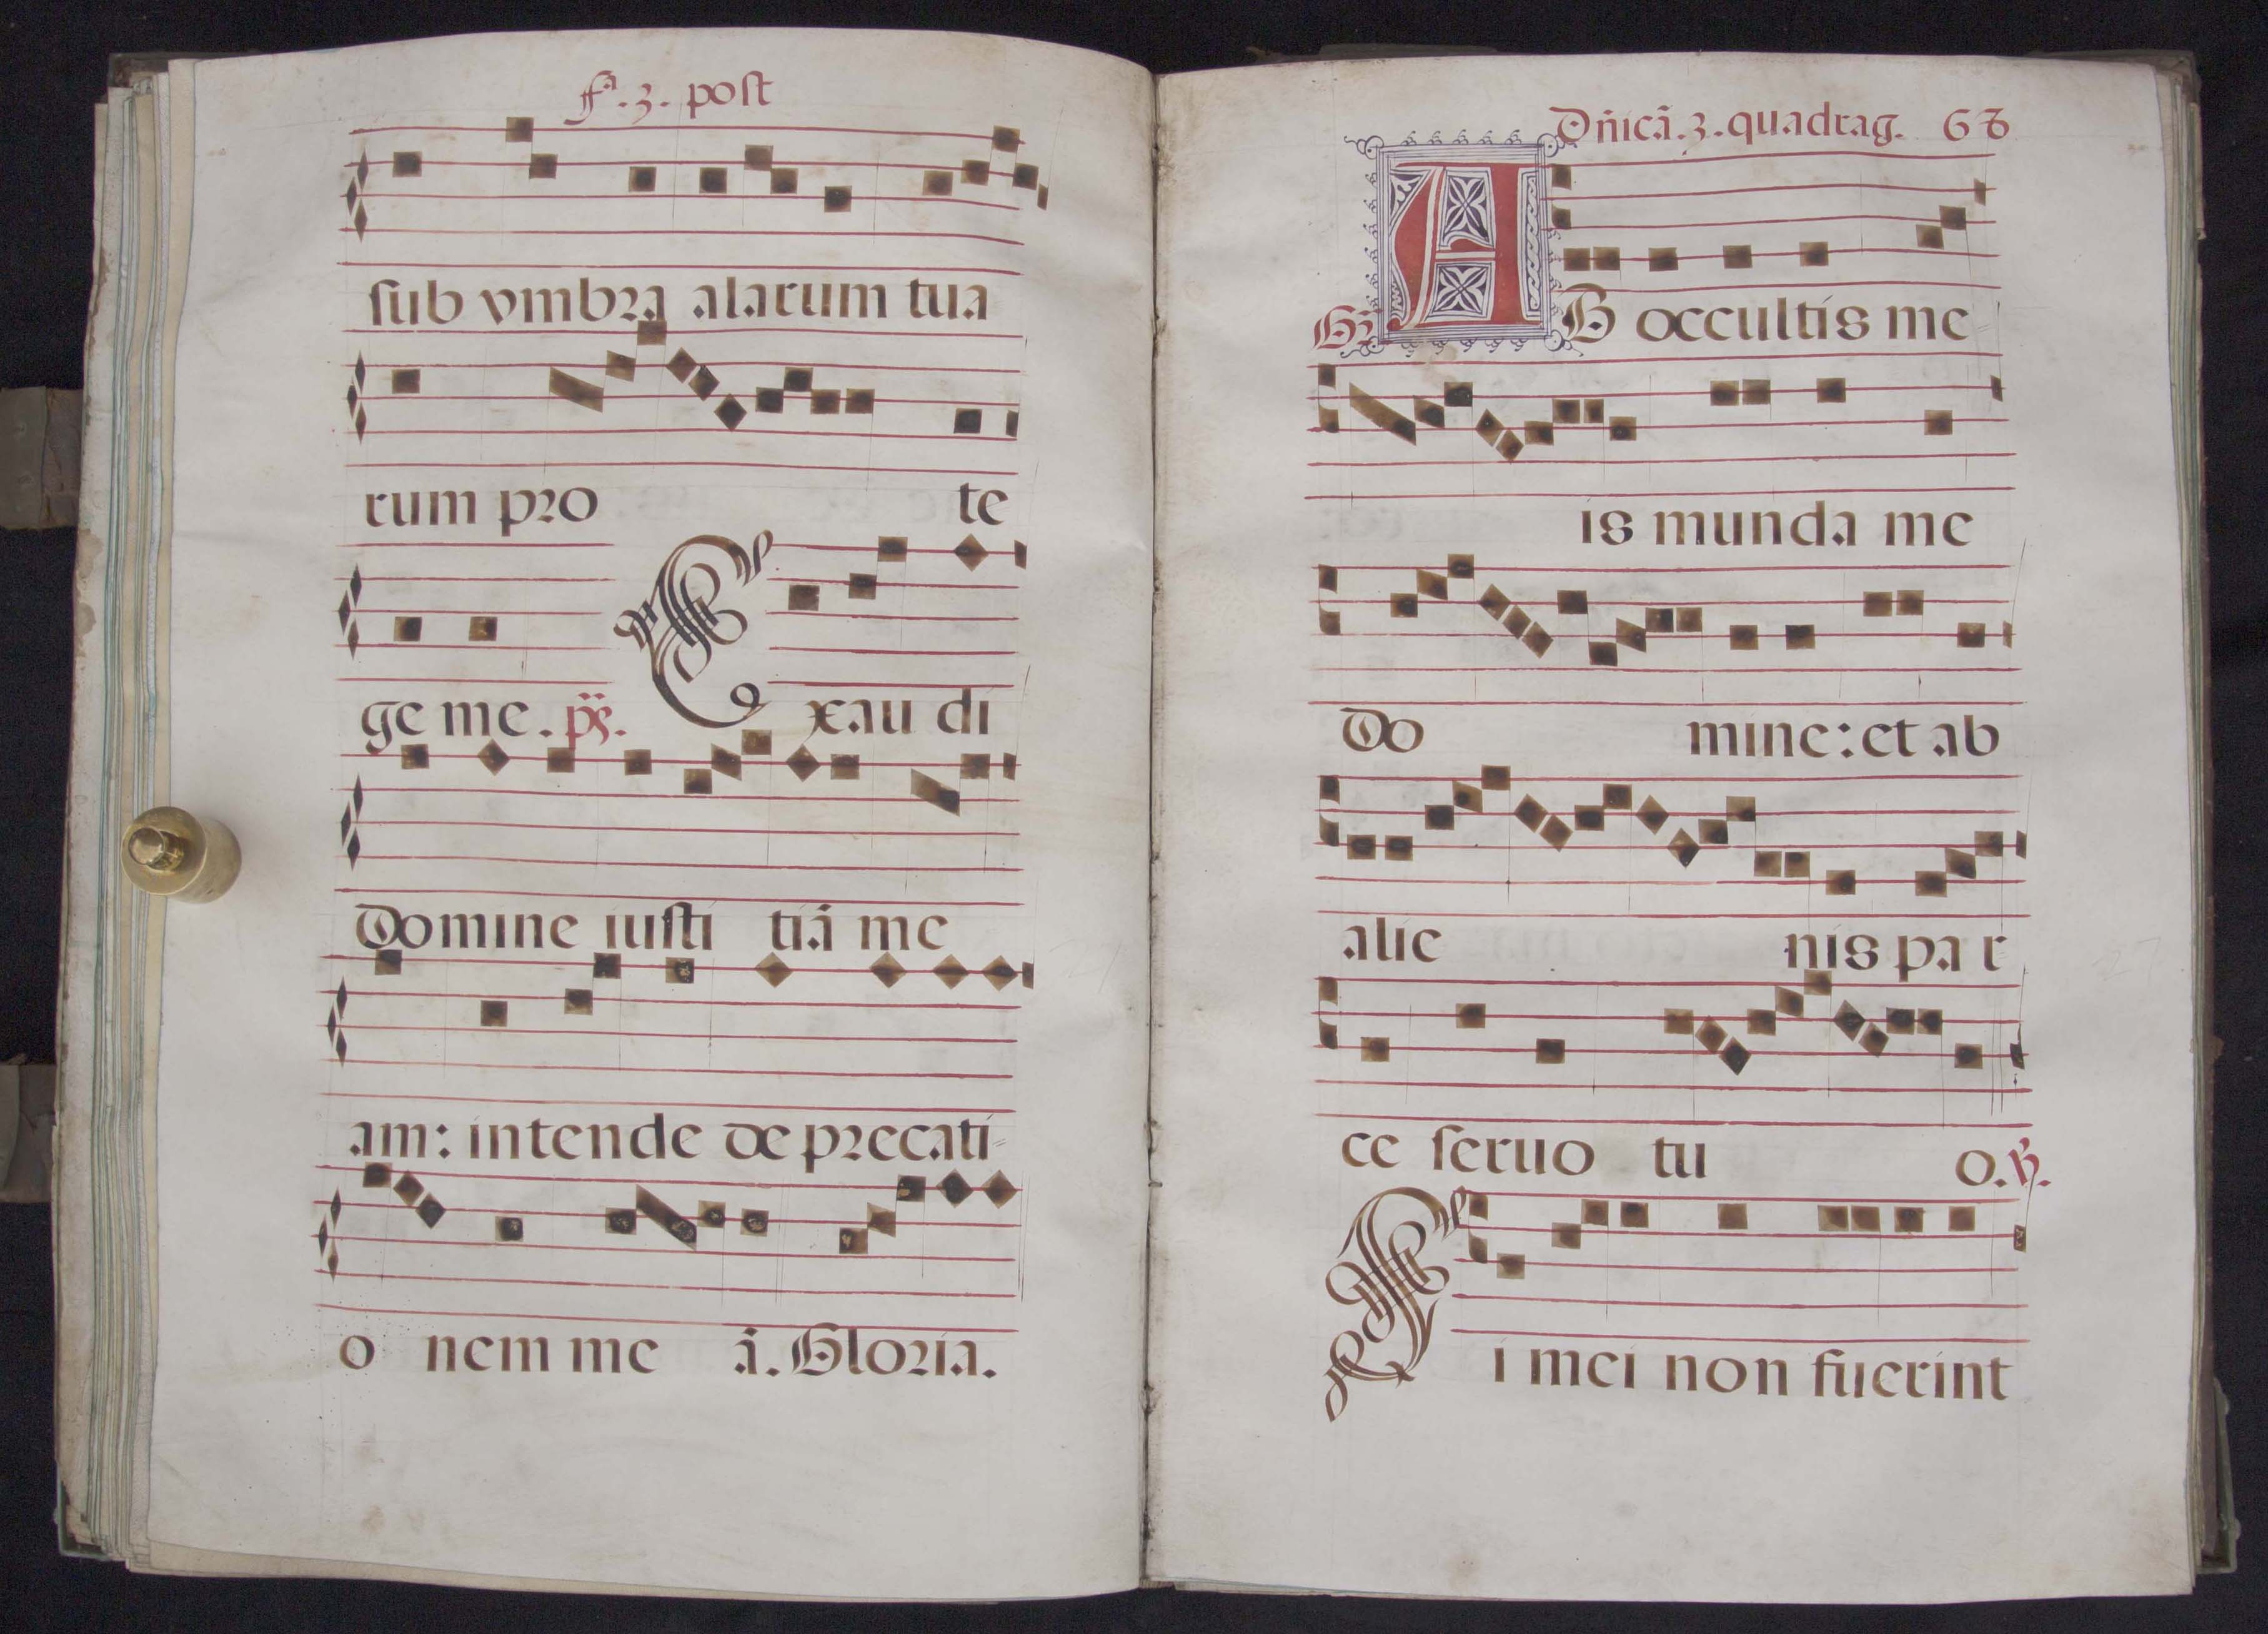 fª. 3. post
sub vmbra alarum tua
rum pro te
ge me. ps. Exau di
Domine iusti tiã me
am: intende deprecati=
o nem me ã. Gloria.
Dñicã. 3. quadrag. 68
Gr. AB occultis me
is munda me
Do mine: et ab
alie nis pa r
ce seruo tu o. ℣.
Si mei non fuerint